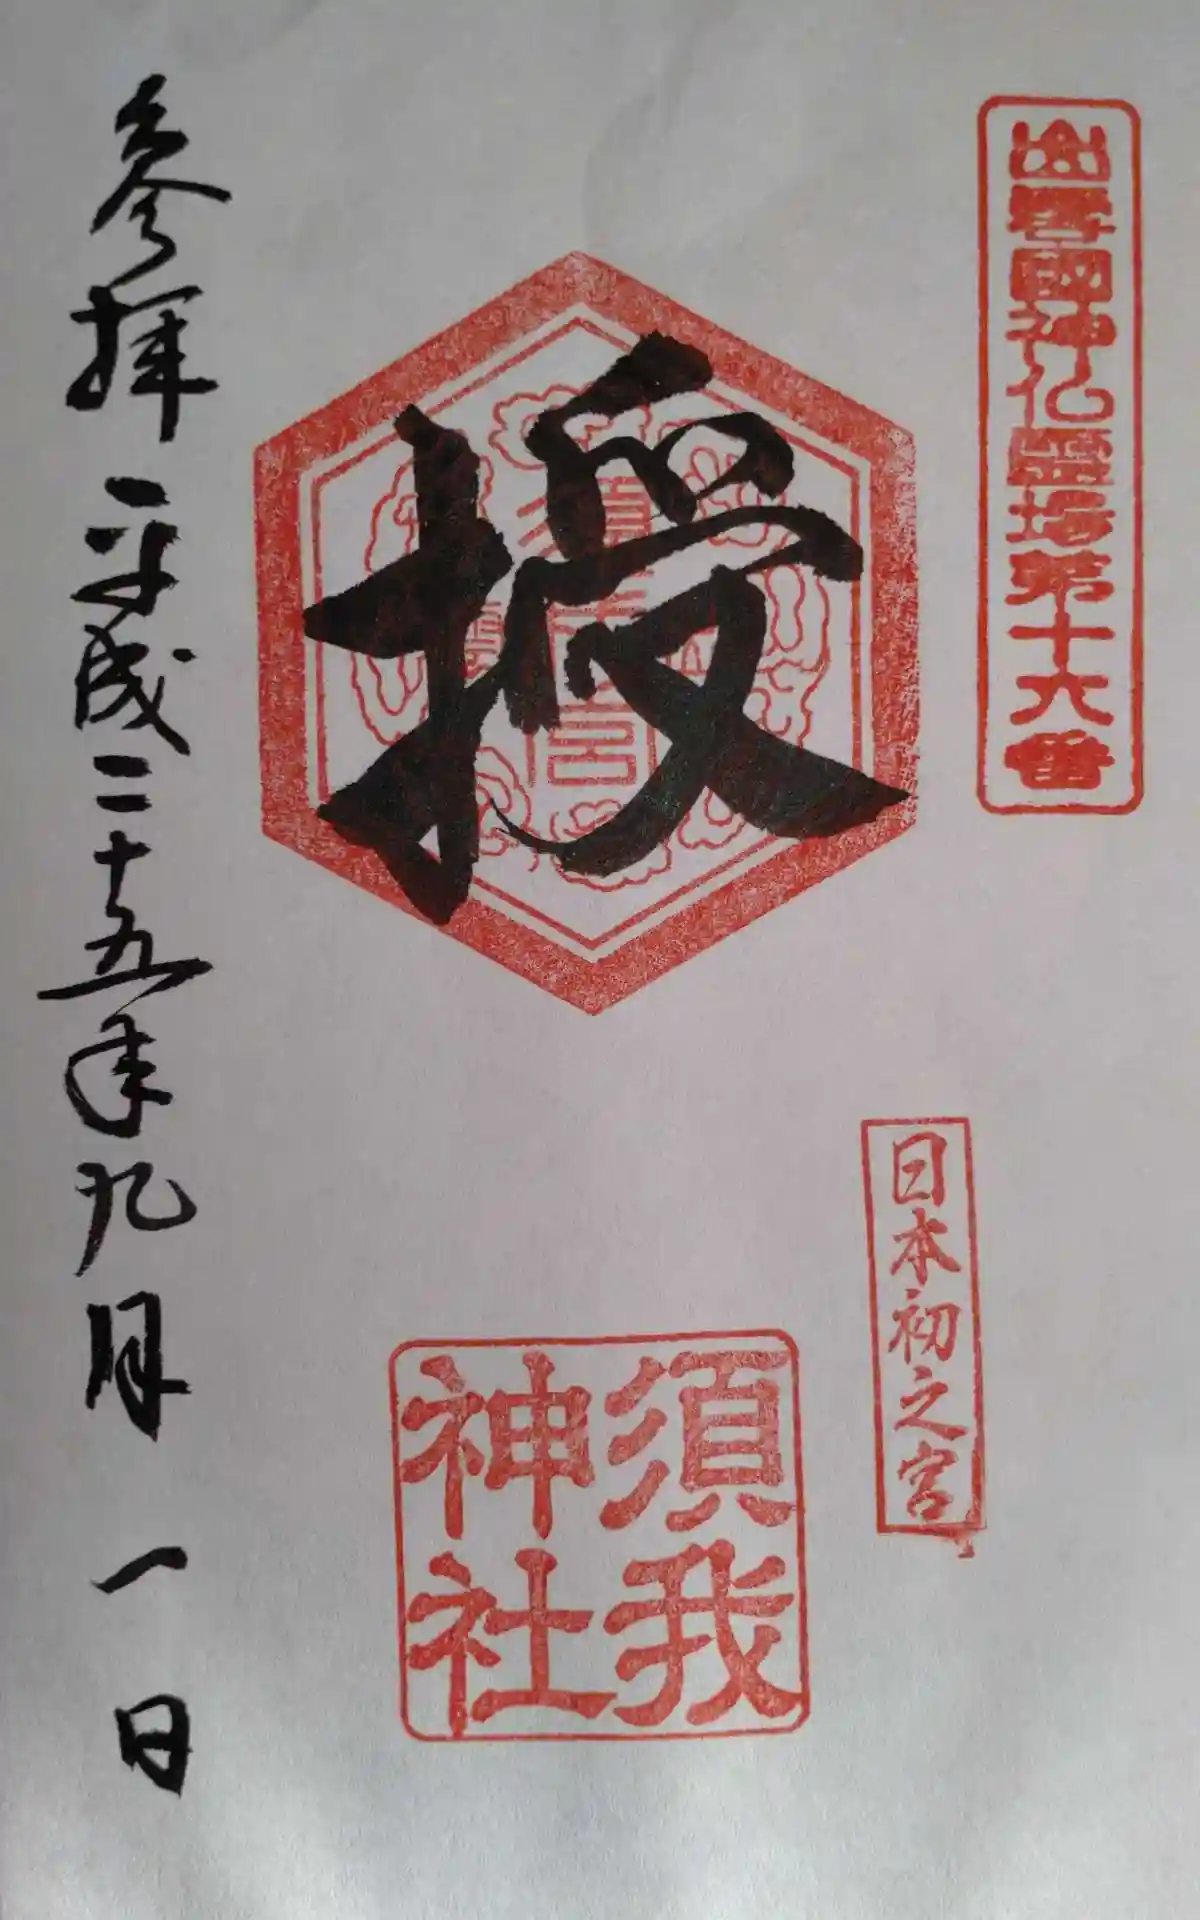 出雲國神仏霊場第十六番
授
日本初之宮
須我
神社
参拝 平成二十五年九月一日